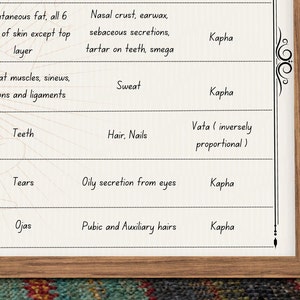 taneous fat, all 6
of skin except top
layer
Nasal crust, earwax,
sebaceous secretions,
tartar on teeth, smega
Kapha
at muscles, sinews,
ons and ligaments
Sweat
Kapha
Teeth
Hair, Nails
Vata ( inversely
proportional )
Tears
Oily secretion from eyes
Kapha
Ojas
Pubic and Auxiliary hairs
Kapha